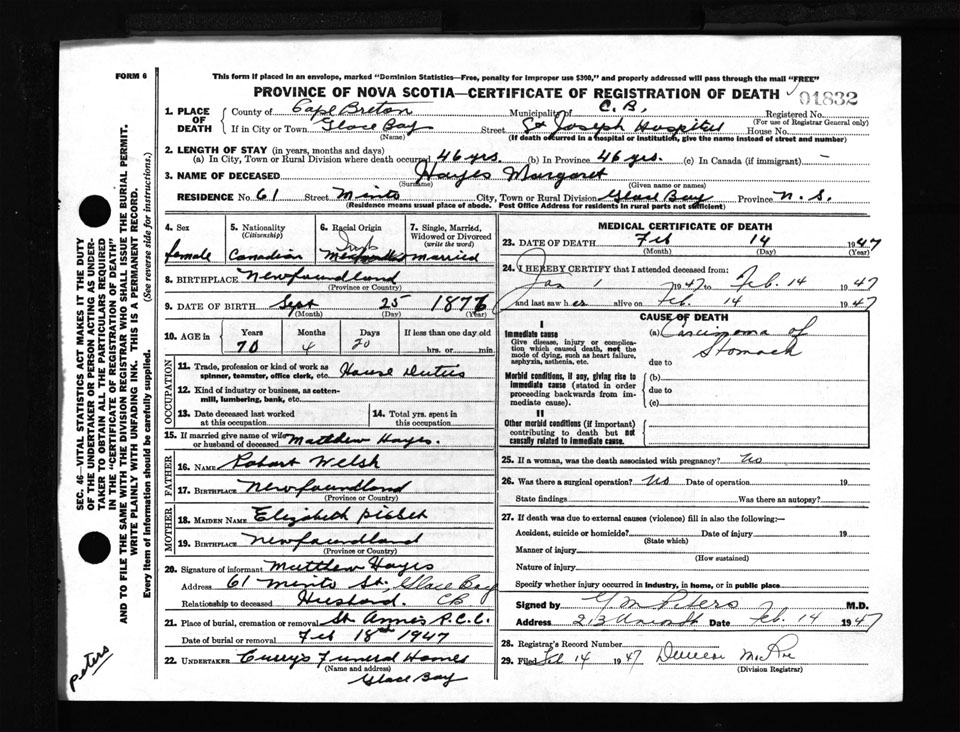 FORM 6
This form if placed in an envelope, marked "Dominion Statistics—Free, penalty for improper use $300," and properly addressed will pass through the mail "FREE"
PROVINCE OF NOVA SCOTIA—CERTIFICATE OF REGISTRATION OF DEATH
01832
1. PLACE OF DEATH
County of Cape Breton Municipality of C.B. Registered No.
(For use of Registrar General only)
If in City or Town Glace Bay Street St Joseph Hospital House No.
(Name) (If death occurred in a hospital or institution, give the name instead of street and number)
2. LENGTH OF STAY (in years, months and days)
(a) In City, Town or Rural Division where death occurred 46 yrs. (b) In Province 46 yrs. (c) In Canada (if immigrant) —
3. NAME OF DECEASED Hayes Margaret
(Surname) (Given name or names)
RESIDENCE No. 61 Street Minto City, Town or Rural Division Glace Bay Province N.S.
(Residence means usual place of abode. Post Office Address for residents in rural parts not sufficient)
4. Sex 5. Nationality (Citizenship) 6. Racial Origin 7. Single, Married, Widowed or Divorced (write the word)
female Canadian Irish married
8. BIRTHPLACE Newfoundland
(Province or Country)
9. DATE OF BIRTH Sept 25 1876
(Month) (Day) (Year)
10. AGE in Years Months Days If less than one day old
70 4 20 hrs. or min.
OCCUPATION
11. Trade, profession or kind of work as spinner, teamster, office clerk, etc. House Duties
12. Kind of industry or business, as cotton-mill, lumbering, bank, etc.
13. Date deceased last worked at this occupation
14. Total yrs. spent in this occupation
15. If married give name of wife or husband of deceased Matthew Hayes.
FATHER
16. NAME Robert Welsh
17. BIRTHPLACE Newfoundland
(Province or Country)
MOTHER
18. MAIDEN NAME Elizabeth
19. BIRTHPLACE Newfoundland
(Province or Country)
20. Signature of informant Matthew Hayes
Address 61 Minto St., Glace Bay
Relationship to deceased Husband. CB
21. Place of burial, cremation or removal St Anne's R.C.C.
Date of burial or removal Feb 18th 1947
22. UNDERTAKER Curry's Funeral Homes
(Name and address)
Glace Bay
MEDICAL CERTIFICATE OF DEATH
23. DATE OF DEATH Feb 14 1947
(Month) (Day) (Year)
24. I HEREBY CERTIFY that I attended deceased from:
Jan 1 1947 to Feb. 14 1947
and last saw her alive on Feb. 14 1947
CAUSE OF DEATH
I
Immediate cause
Give disease, injury or complication which caused death, not the mode of dying, such as heart failure, asphyxia, asthenia, etc.
(a) Carcinoma of Stomach
due to
Morbid conditions, if any, giving rise to immediate cause (stated in order proceeding backwards from immediate cause).
(b)
due to
(c)
II
Other morbid conditions (if important) contributing to death but not causally related to immediate cause.
25. If a woman, was the death associated with pregnancy? No
26. Was there a surgical operation? No Date of operation 19
State findings Was there an autopsy?
27. If death was due to external causes (violence) fill in also the following:—
Accident, suicide or homicide? Date of injury 19
(State which)
Manner of injury
(How sustained)
Nature of injury
Specify whether injury occurred in industry, in home, or in public place
Signed by Peters M.D.
Address Date Feb. 14 1947
28. Registrar's Record Number
29. Filed Feb 14 1947
(Division Registrar)
SEC. 46—VITAL STATISTICS ACT MAKES IT THE DUTY
OF THE UNDERTAKER OR PERSON ACTING AS UNDER-
TAKER TO OBTAIN ALL THE PARTICULARS REQUIRED
IN THE "CERTIFICATE OF REGISTRATION OF DEATH"
AND TO FILE THE SAME WITH THE DIVISION REGISTRAR WHO SHALL ISSUE THE BURIAL PERMIT.
WRITE PLAINLY WITH UNFADING INK. THIS IS A PERMANENT RECORD.
Every item of information should be carefully supplied. (See reverse side for instructions.)
Peters